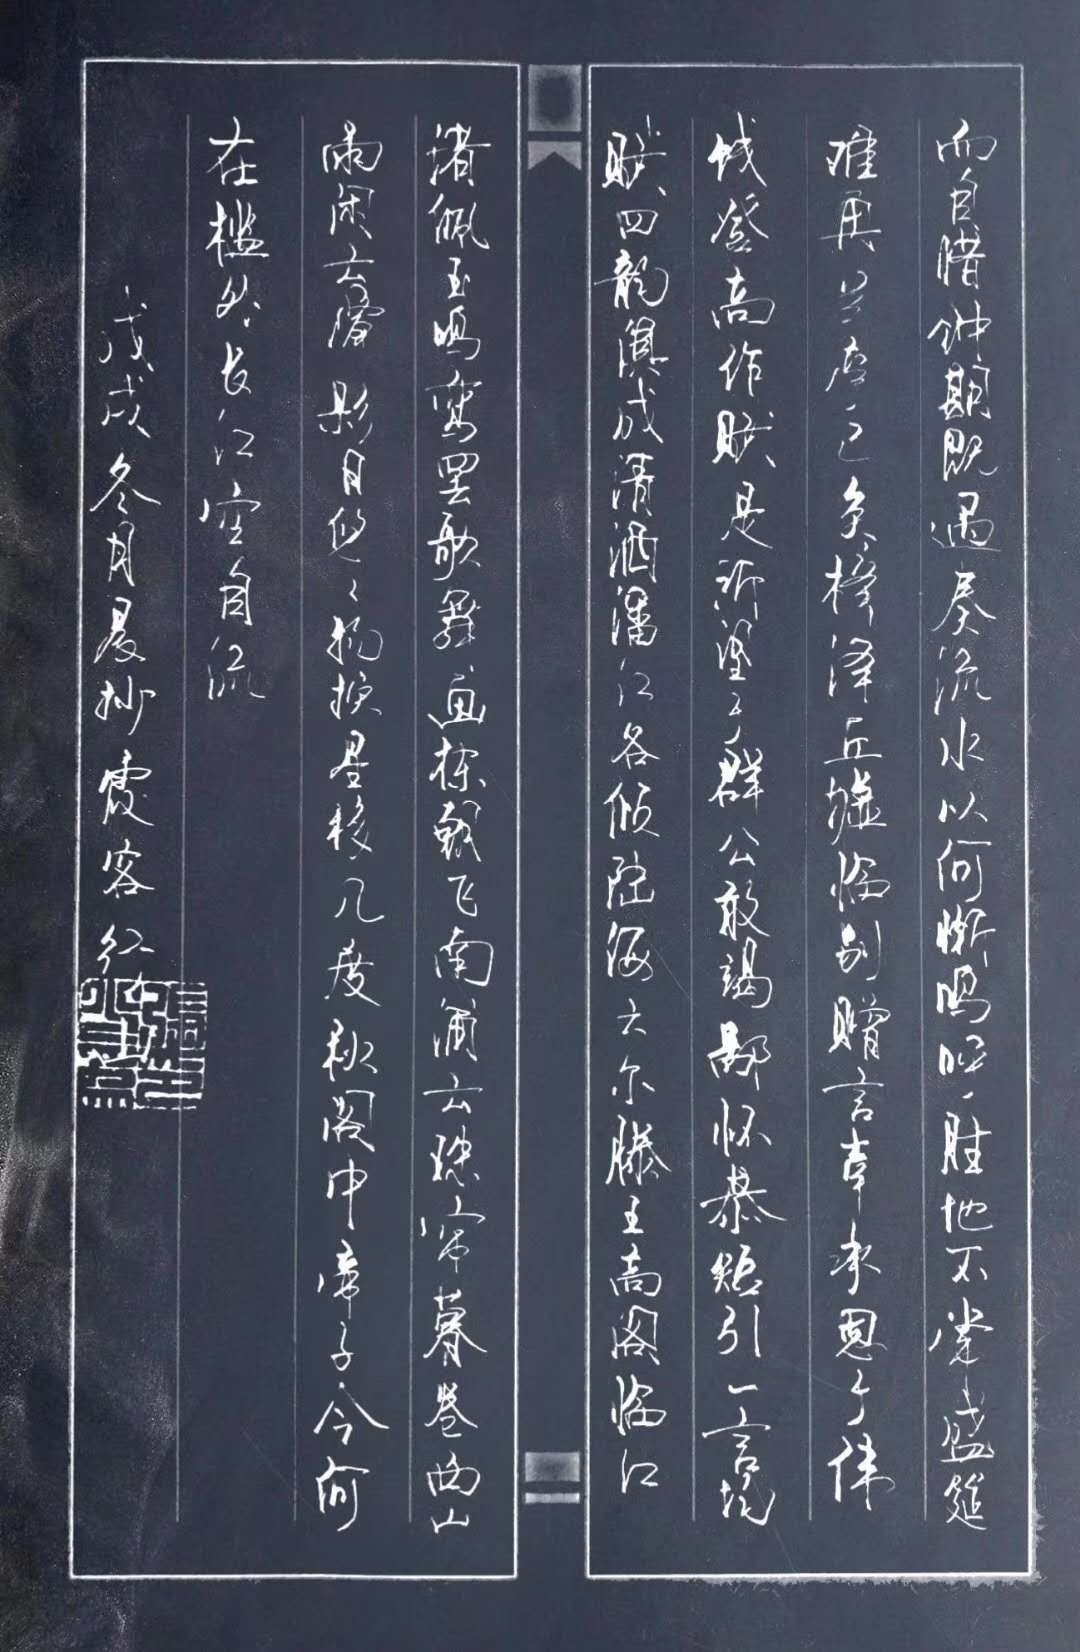 而自惜钟期既遇奏流水以何惭呜呼胜地不常盛筵
难再兰亭已矣梓泽丘墟临别赠言幸承恩于伟
饯登高作赋是所望于群公敢竭鄙怀恭短引一言均
赋四韵俱成请洒潘江各倾陆海云尔滕王高阁临江
渚佩玉鸣鸾罢歌舞画栋朝飞南浦云珠帘暮卷西山
雨闲云潭影日悠々物换星移几度秋阁中帝子今何
在槛外长江空自流
戊戌冬月晨抄霞客红